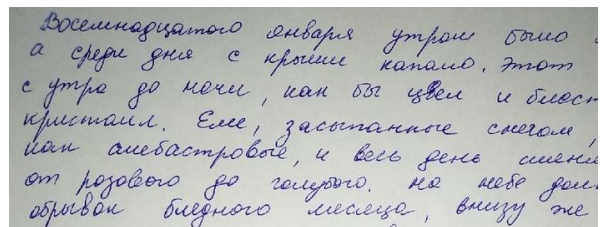 Восемнадцатого января утром было
а среди дня с крыши капало. Этот
с утра до ночи, как бы цвел и блест
кристалл. Ели, засыпанные снегом,
как алебастровые, и весь день
от розового до голубого. На небе
обрывок бледного месяца, внизу же